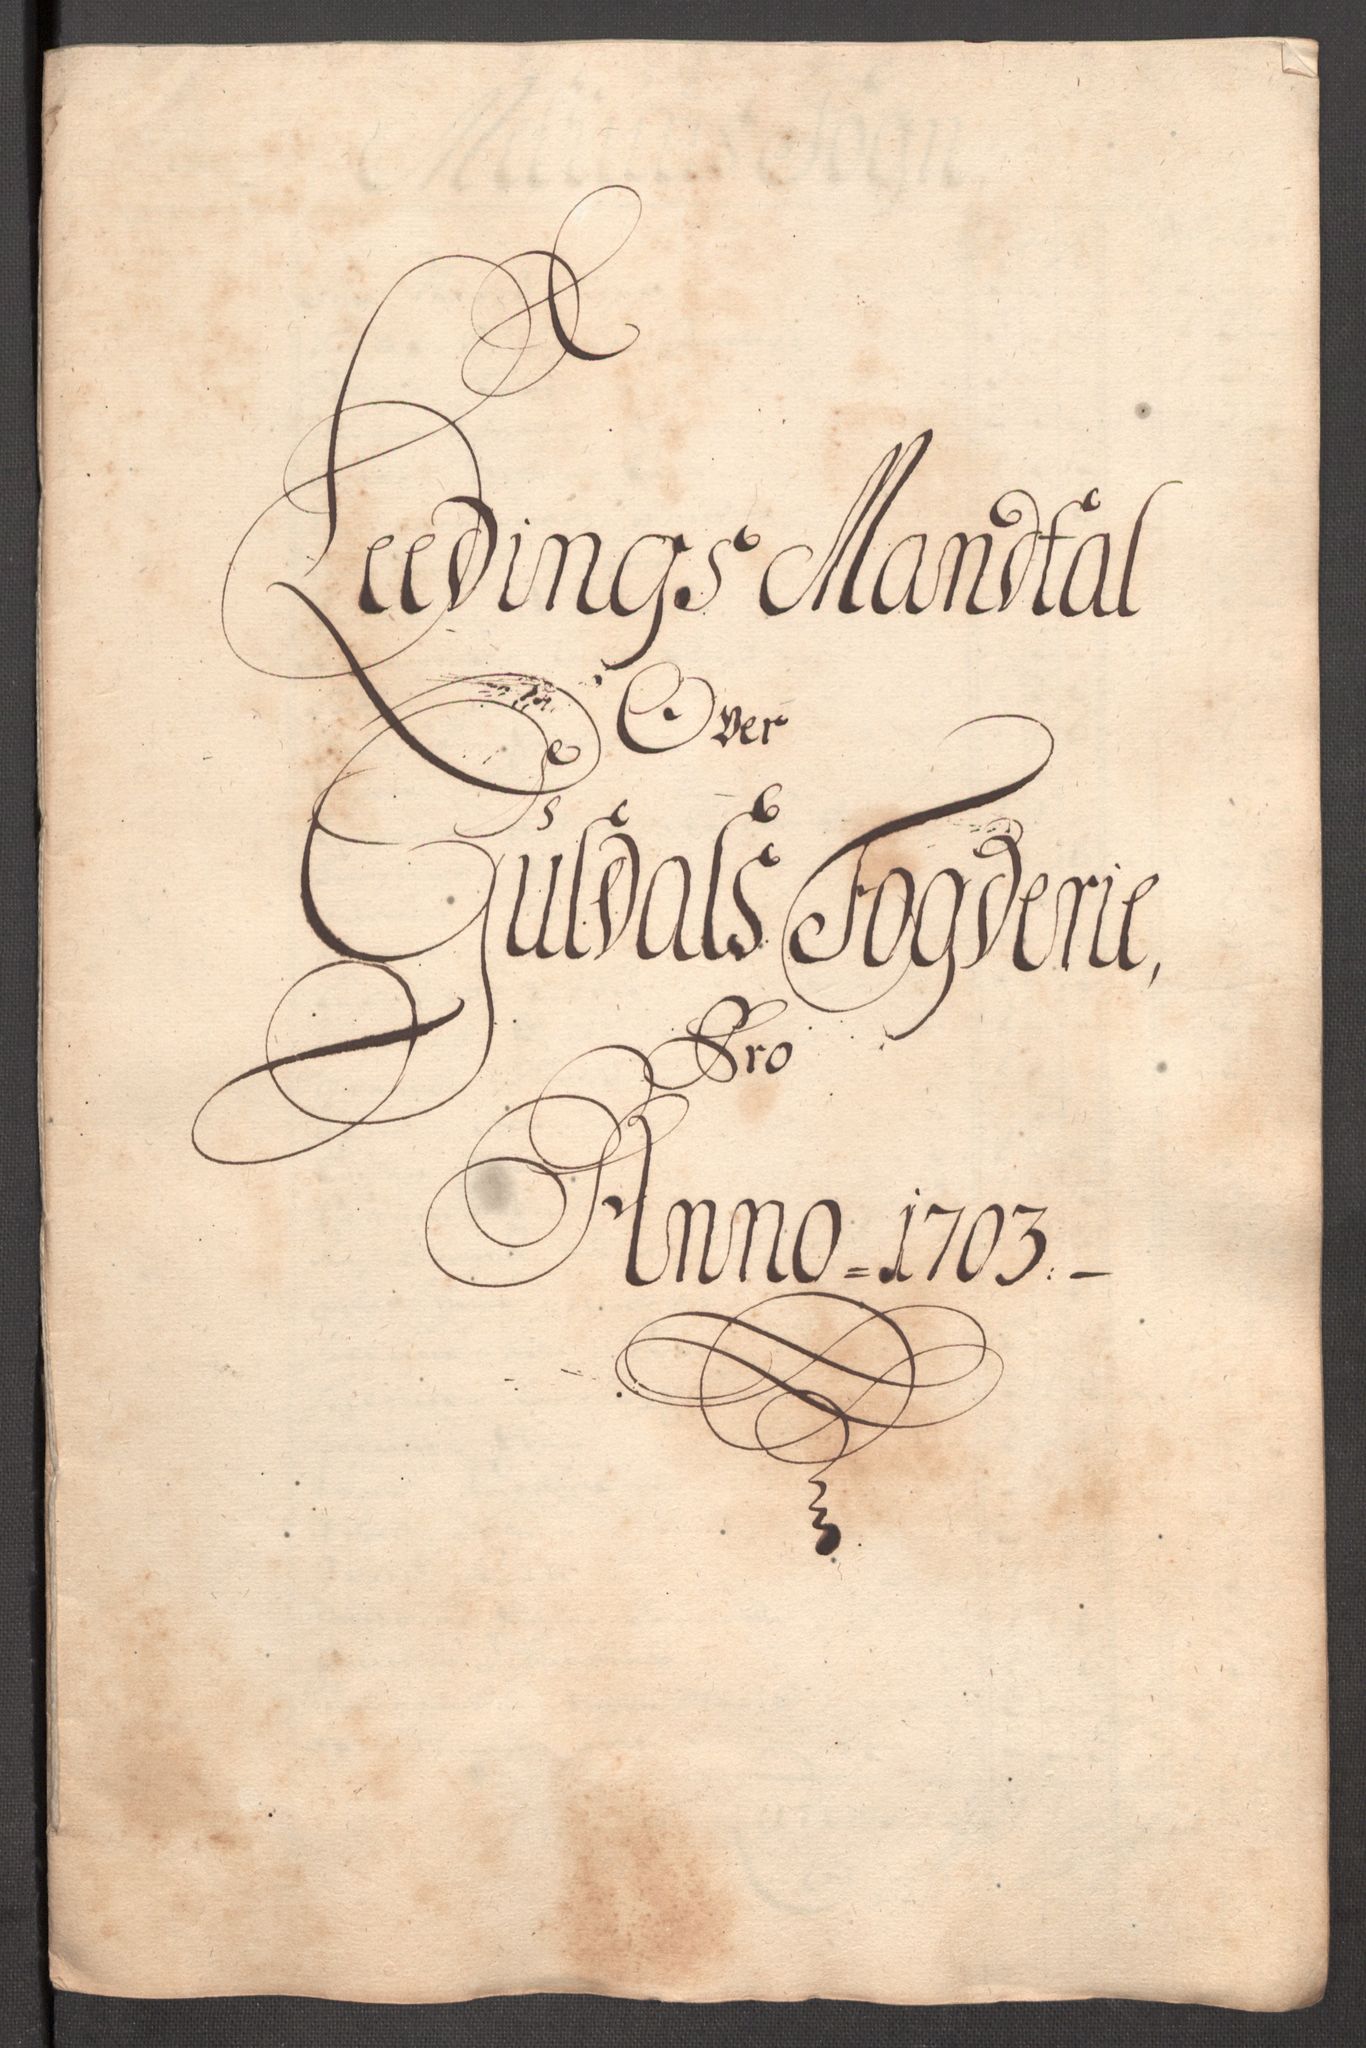 Leedings Mandtal
Over
Guldals Fogderie,
Pro
Anno = 1703. –